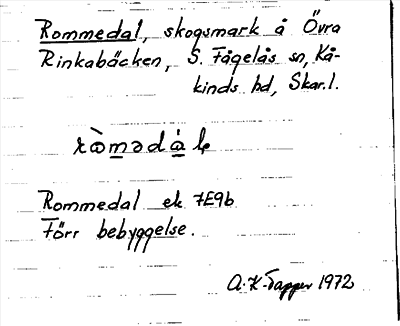 Rommedal, skogsmark å Övra
Rinkabäcken, S. Fågelås sn, Kå-
kinds hd, Skar.l.
Rommedal ek 7E9b
Förr bebyggelse.
A.K. Tapper 1972